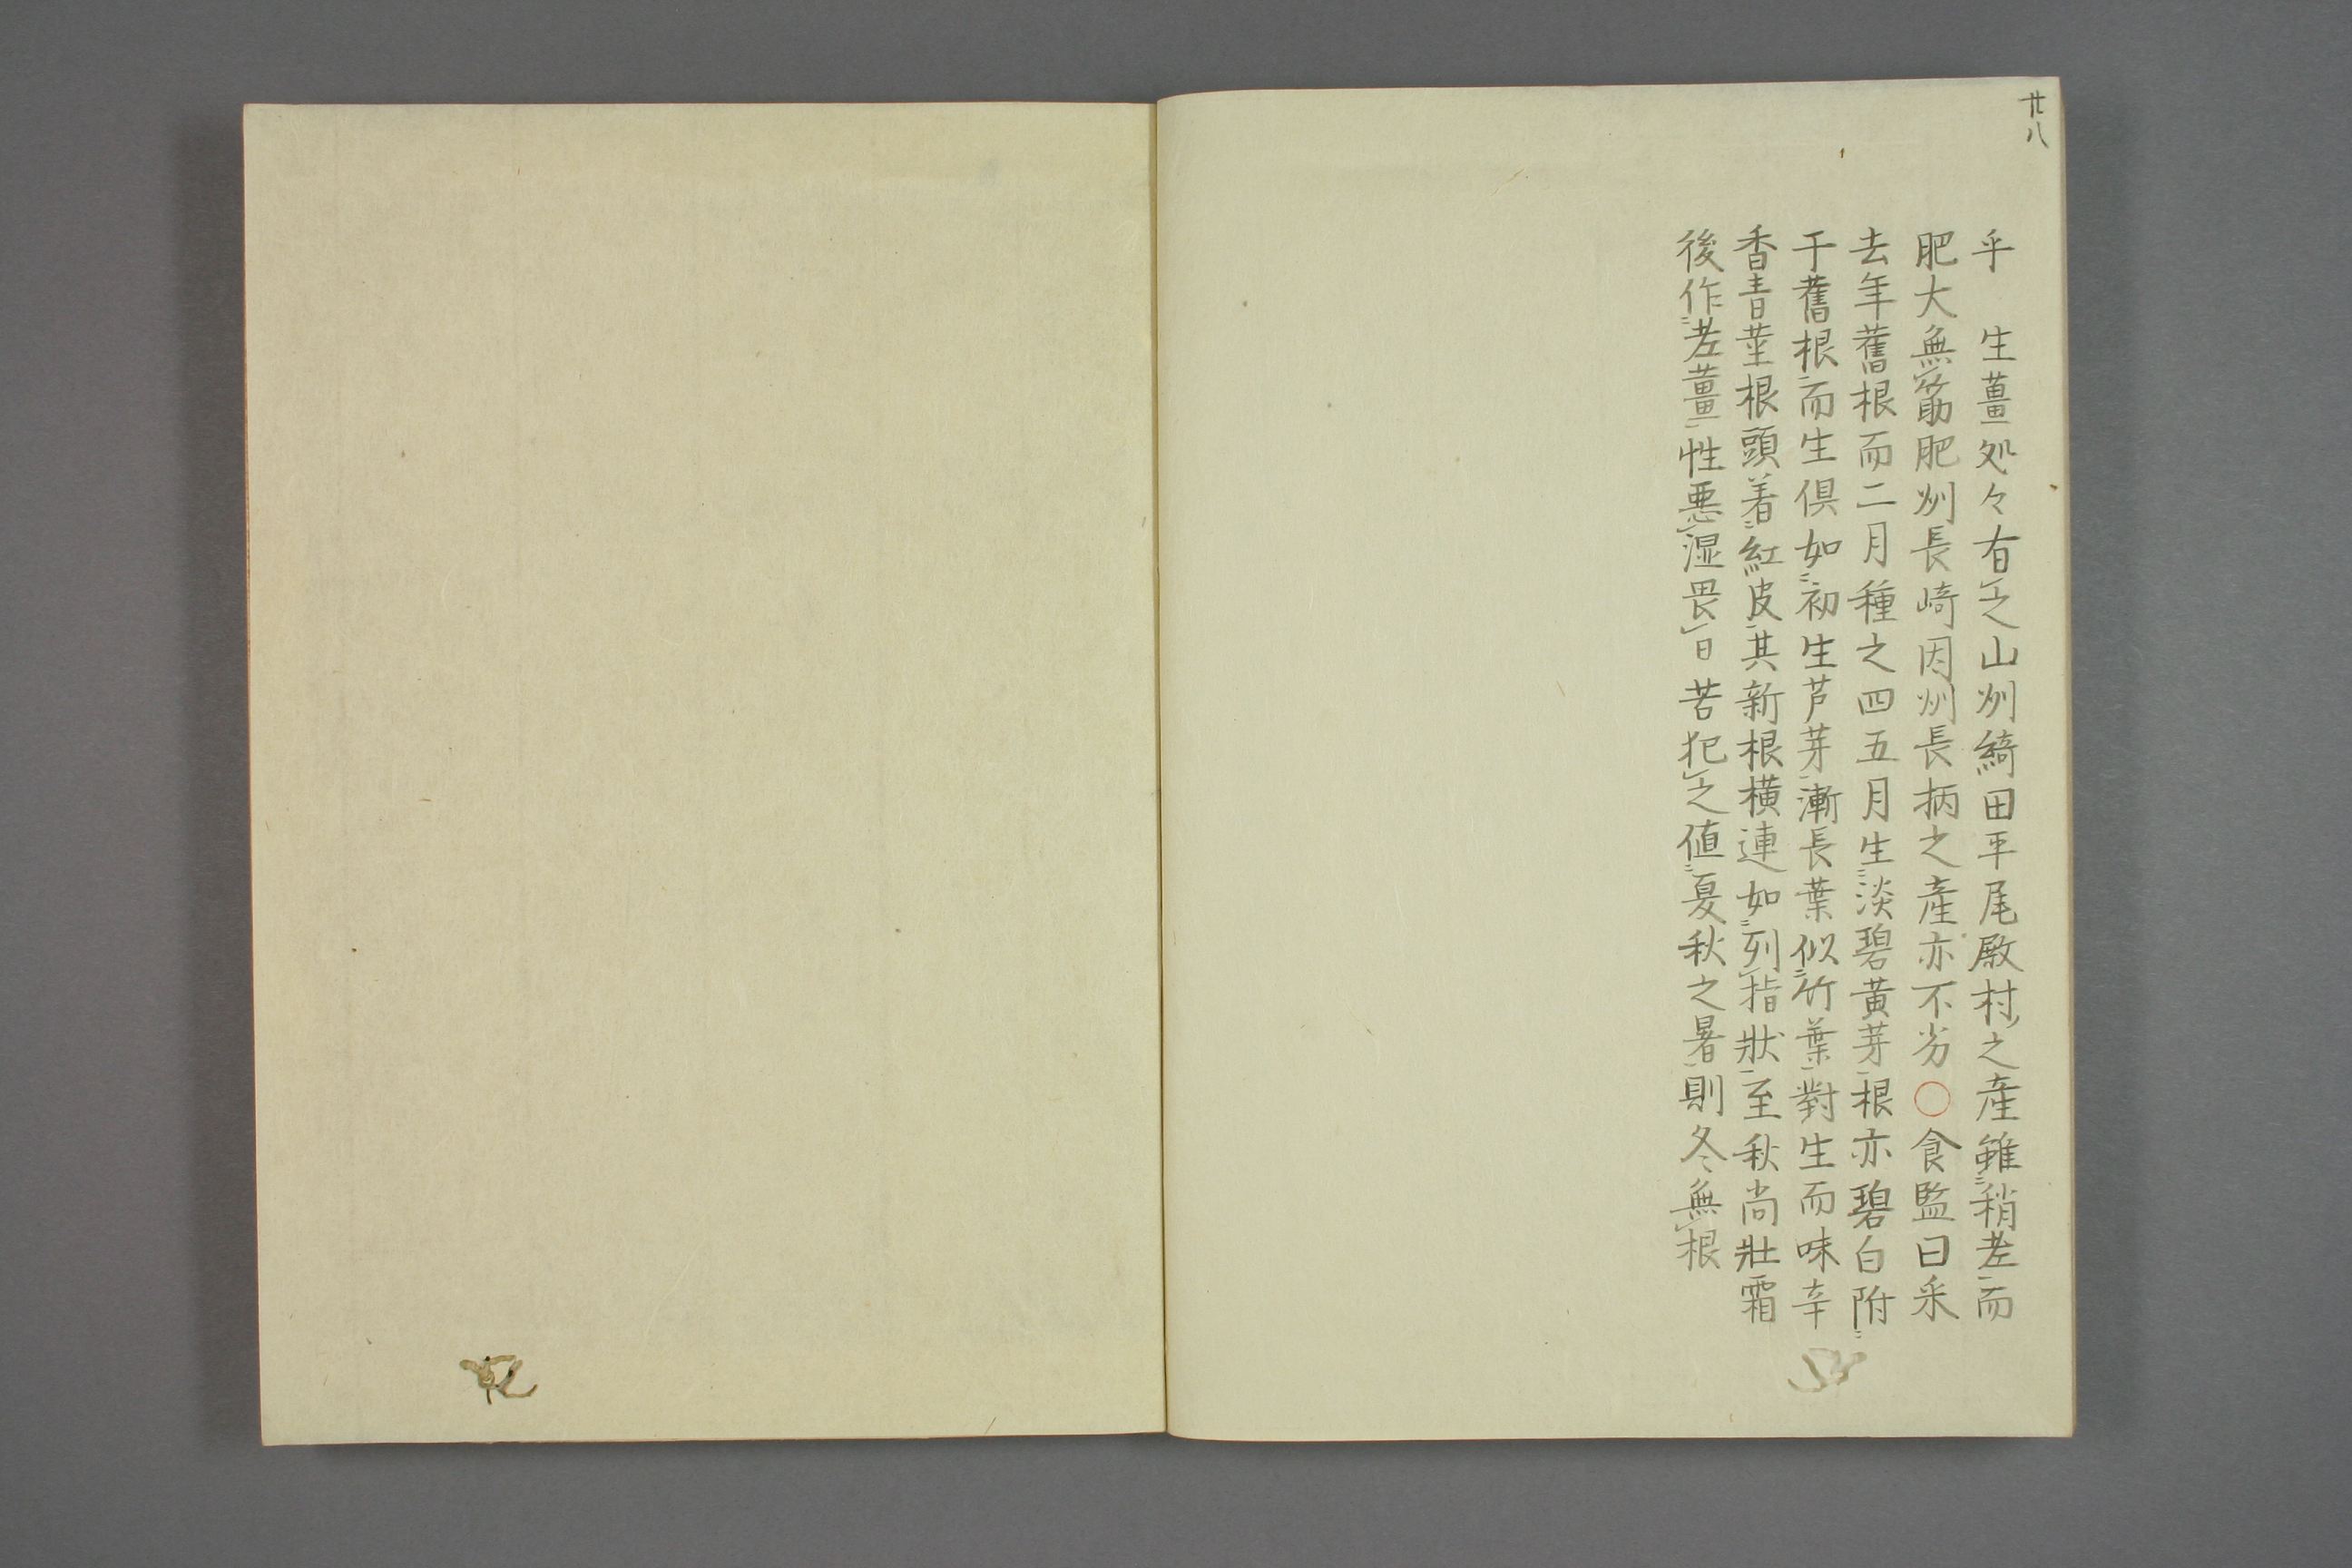 廿八
乎　生薑処々有之山州綺田平尾殿村之産雖稍老而
肥大無筋肥州長崎因州長柄之産亦不劣〇食監曰采
去年舊根而二月種之四五月生淡碧黄芽根亦碧白附
于舊根而生倶如初生芦芽漸長葉似竹葉對生而味辛
香青莖根頭着紅皮其新根横連如列指状至秋尚壮霜
後作老薑性悪湿畏日苦犯之値夏秋之暑則冬無根